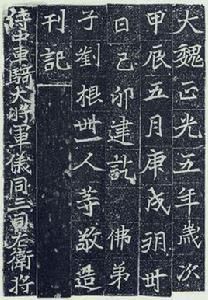 大魏正光五年歲次
甲辰五月庚戌朔卅
日己卯建訖　佛弟
子劉根卌一人等敬造
刊記
侍中車騎大將軍儀同三司右衛將